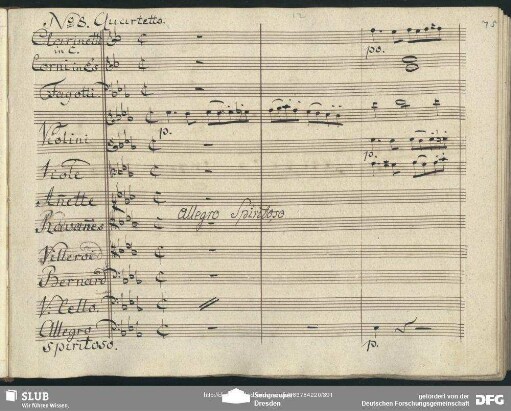 No 8. Quartetto.
12
75
Clarinetti
in C.
po.
Corni in Es
Fagotti
p.
Violini
p.
Viole
Añette
Allegro Spiritoso
Villeroi
Bernard
V: Cello.
Allegro
spiritoso.
p.
SLUB
Wir führen Wissen.
Dresden
gefördert von der
Deutschen Forschungsgemeinschaft
DFG